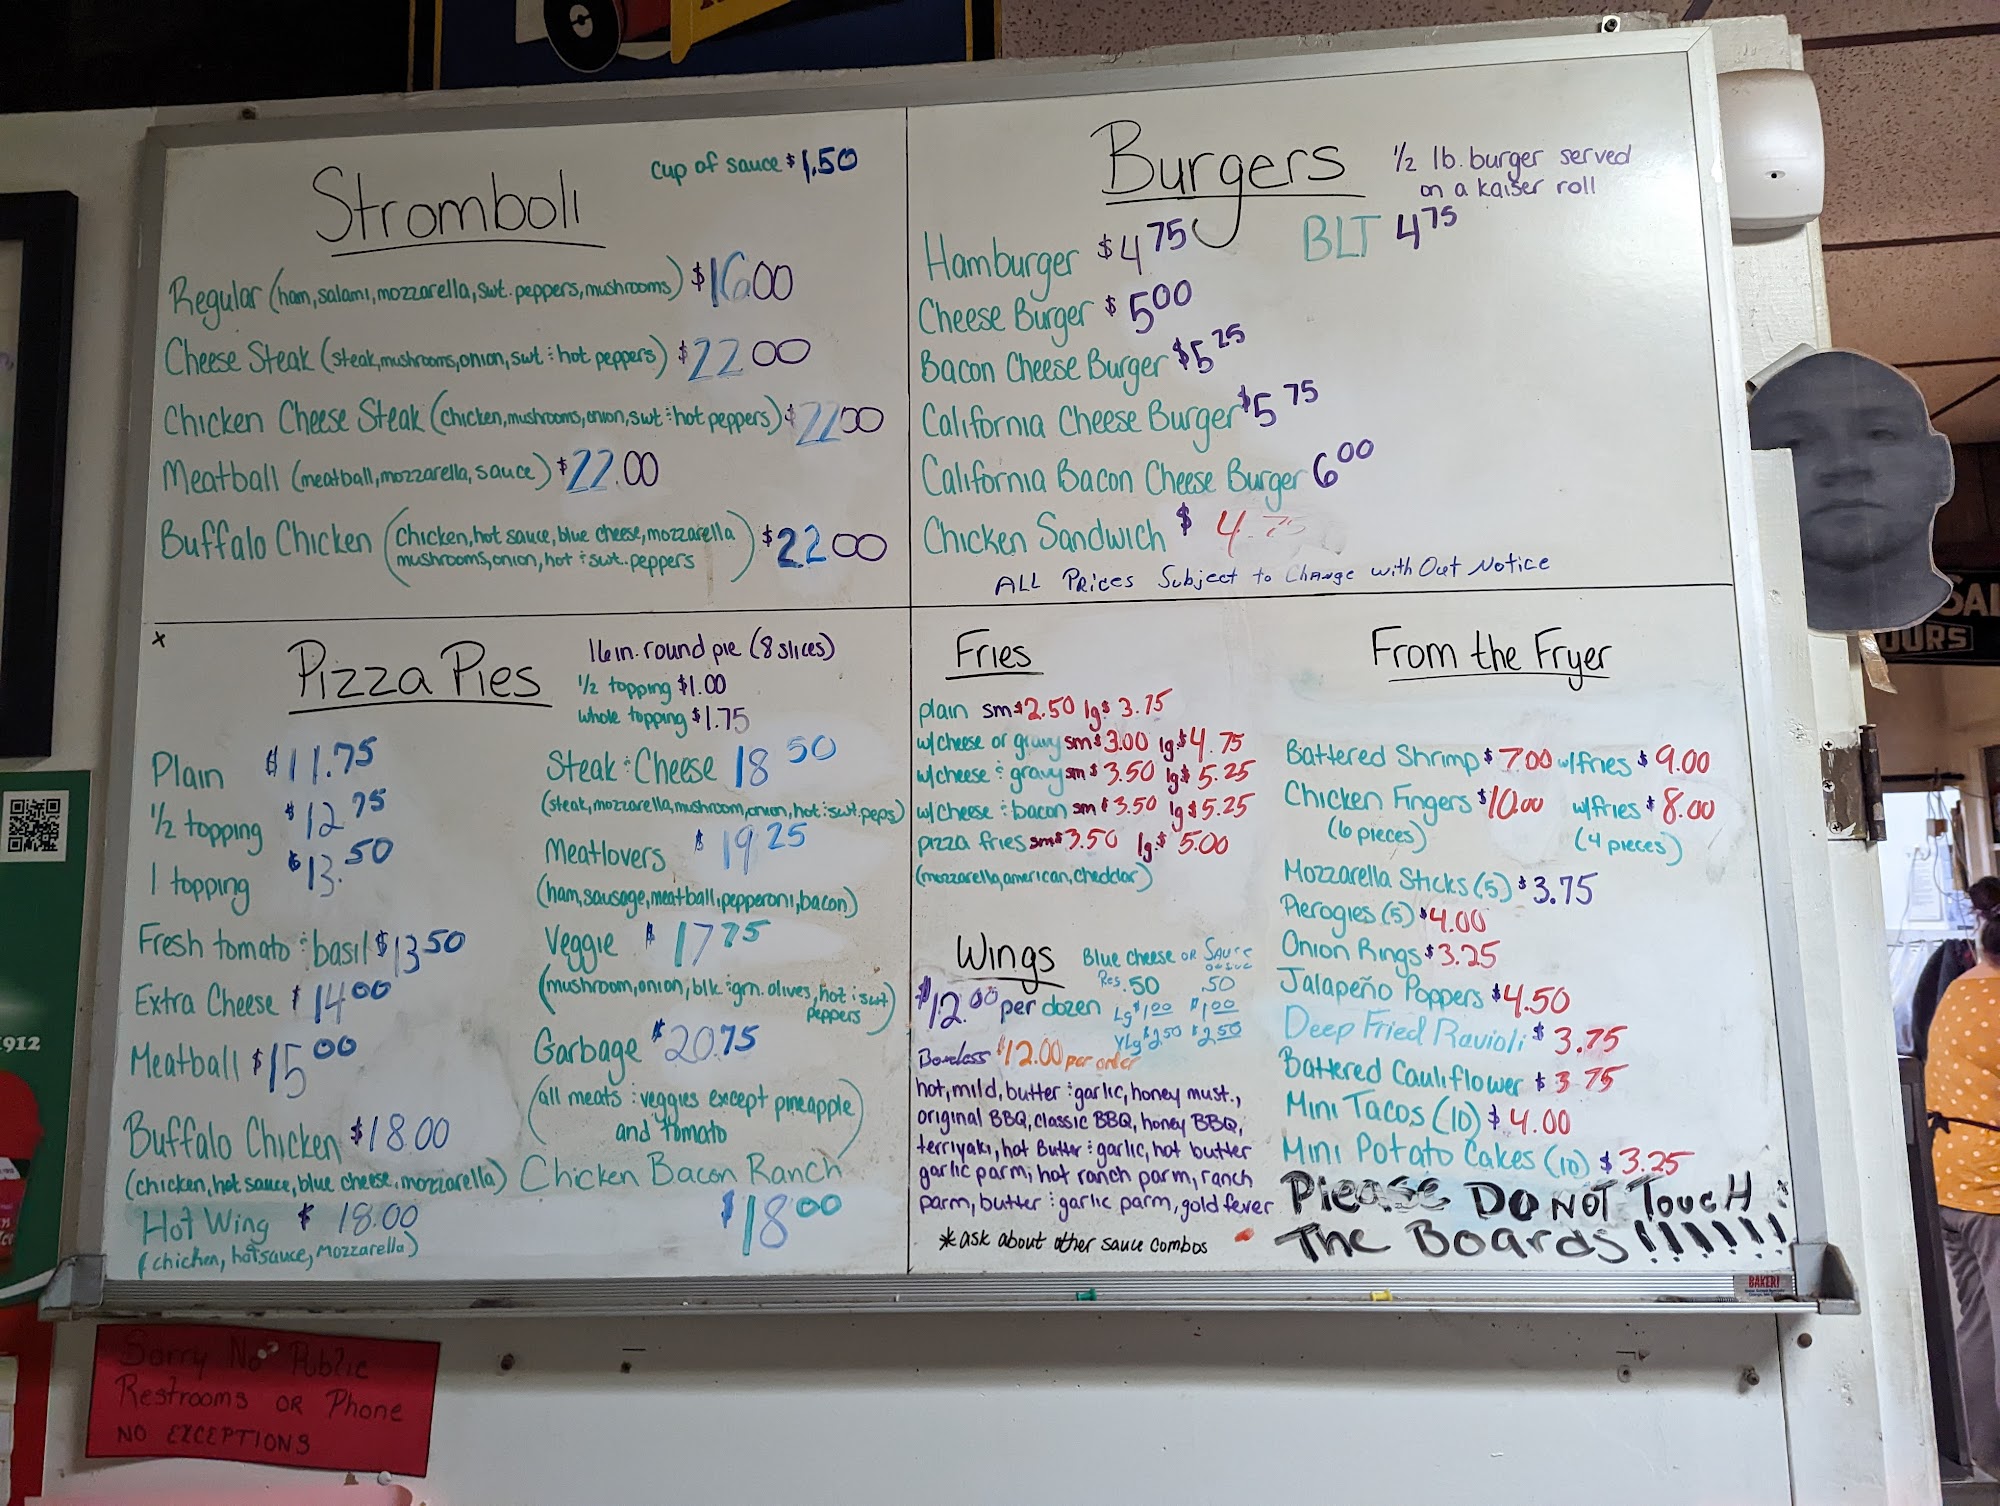 Stromboli
cup of sauce $1.50
Regular (ham, salami, mozzarella, swt. peppers, mushrooms) $16.00
Cheese Steak (steak, mushrooms, onion, swt & hot peppers) $22.00
Chicken Cheese Steak (chicken, mushrooms, onion, swt & hot peppers) $22.00
Meatball (meatball, mozzarella, sauce) $22.00
Buffalo Chicken (Chicken, hot sauce, blue cheese, mozzarella
mushrooms, onion, hot & swt. peppers) $22.00
Burgers
1/2 lb. burger served
on a kaiser roll
Hamburger $4 75
BLT 4 75
Cheese Burger $5 00
Bacon Cheese Burger $5 25
California Cheese Burger $5 75
California Bacon Cheese Burger 6 00
Chicken Sandwich $4.75
ALL Prices Subject to Change without Notice
x
Pizza Pies
16 in. round pie (8 slices)
1/2 topping $1.00
whole topping $1.75
Plain $11.75
1/2 topping $12 75
1 topping $13.50
Fresh tomato & basil $13 50
Extra Cheese $14 00
Meatball $15 00
Buffalo Chicken $18.00
(chicken, hot sauce, blue cheese, mozzarella)
Hot Wing $18.00
(chicken, hot sauce, mozzarella)
Steak & Cheese 18 50
(steak, mozzarella, mushroom, onion, hot & swt. peps)
Meatlovers $19 25
(ham, sausage, meatball, pepperoni, bacon)
Veggie $17 75
(mushroom, onion, blk & grn. olives, hot & swt
peppers)
Garbage $20.75
(all meats & veggies except pineapple
and tomato)
Chicken Bacon Ranch
$18 00
Fries
plain sm $2.50 lg $3.75
w/cheese or gravy sm $3.00 lg $4.75
w/cheese & gravy sm $3.50 lg $5.25
w/cheese & bacon sm $3.50 lg $5.25
pizza fries sm $3.50 lg $5.00
(mozzarella, american, cheddar)
Wings
Blue cheese or Sauce
Reg .50 .50
Lg $1 00 $1 00
XLg $2 50 $2 50
$12.00 per dozen
Boneless $12.00 per order
hot, mild, butter & garlic, honey must.,
original BBQ, classic BBQ, honey BBQ,
terriyaki, hot Butter & garlic, hot butter
garlic parm, hot ranch parm, ranch
parm, butter & garlic parm, gold fever
*ask about other sauce combos
From the Fryer
Battered Shrimp $7.00 w/fries $9.00
Chicken Fingers $10.00 w/fries $8.00
(6 pieces) (4 pieces)
Mozzarella Sticks (5) $3.75
Pierogies (5) $4.00
Onion Rings $3.25
Jalapeño Poppers $4.50
Deep Fried Ravioli $3.75
Battered Cauliflower $3.75
Mini Tacos (10) $4.00
Mini Potato Cakes (10) $3.25
Please Do Not Touch
The Boards!!!!!!!
Sorry No Public
Restrooms or Phone
NO EXCEPTIONS
1912
OURS